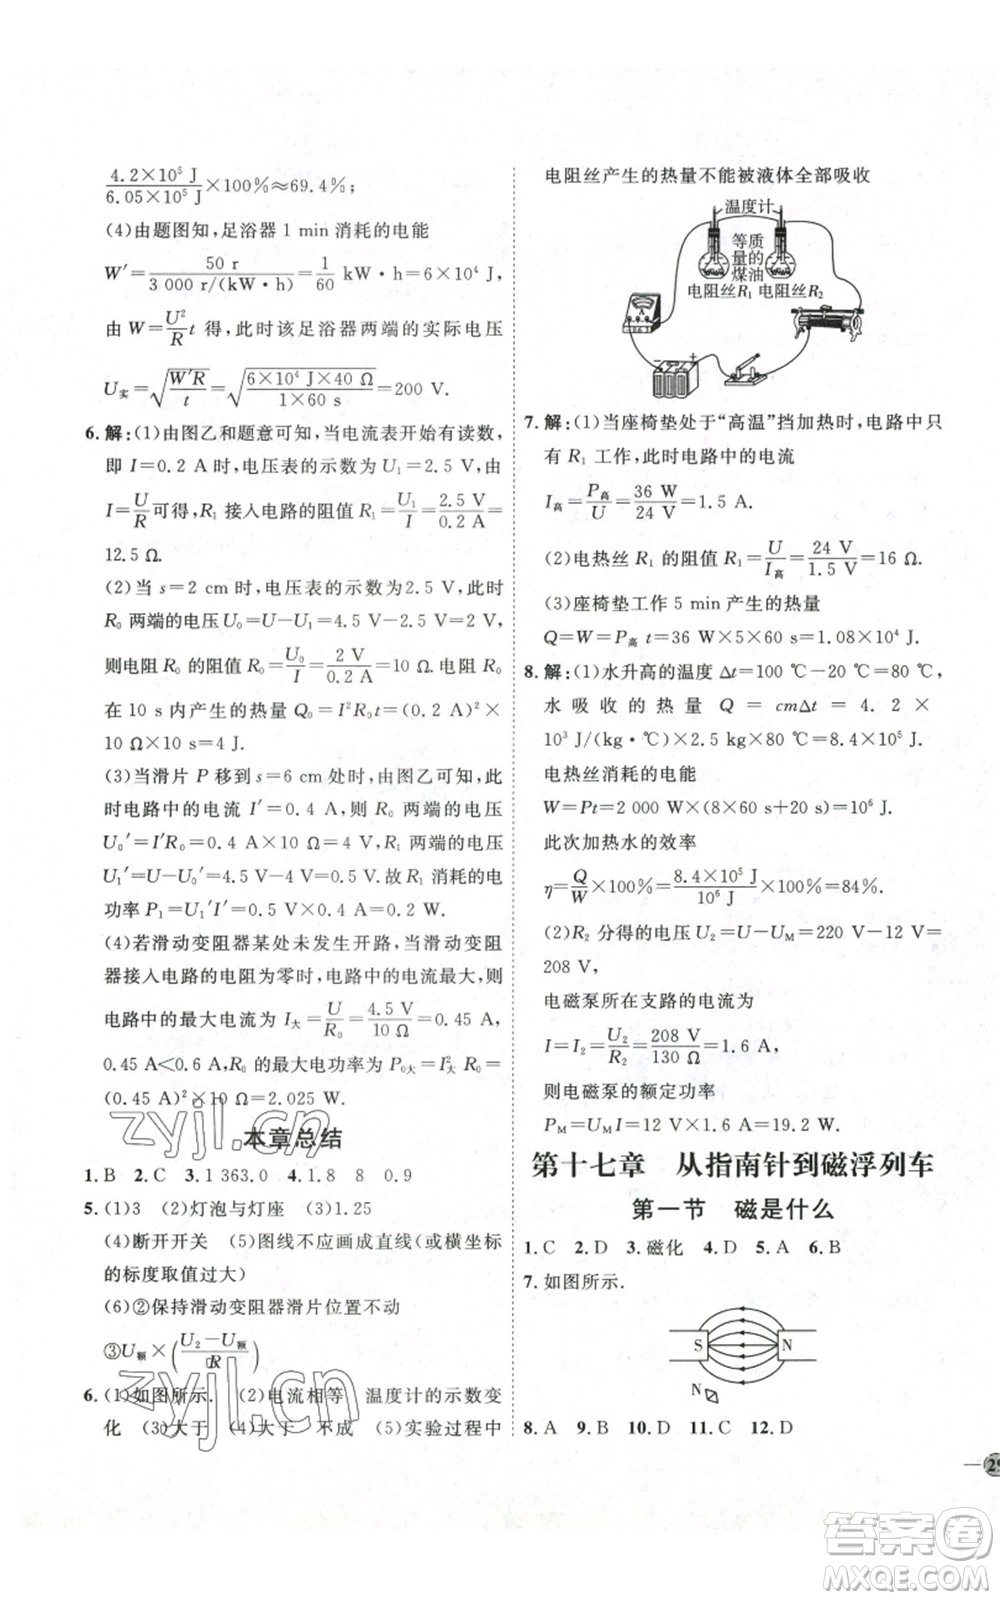 4.2×10⁵ J/6.05×10⁵ J×100%≈69.4%;
(4)由题图知,足浴器 1 min 消耗的电能
W′=50 r/3 000 r/(kW·h)=1/60 kW·h=6×10⁴ J,
由 W=U²/R t 得,此时该足浴器两端的实际电压
U实=√(W′R/t)=√(6×10⁴ J×40 Ω/1×60 s)=200 V.
6.解:(1)由图乙和题意可知,当电流表开始有读数,
即 I=0.2 A时,电压表的示数为 U₁=2.5 V,由
I=U/R可得,R₁接入电路的阻值 R₁=U₁/I=2.5 V/0.2 A=
12.5 Ω.
(2)当 s=2 cm时,电压表的示数为2.5 V,此时
R₀两端的电压U₀=U−U₁=4.5 V−2.5 V=2 V,
则电阻 R₀ 的阻值 R₀=U₀/I=2 V/0.2 A=10 Ω.电阻 R₀
在10 s内产生的热量 Q₀=I²R₀t=(0.2 A)²×
10 Ω×10 s=4 J.
(3)当滑片 P 移到 s=6 cm处时,由图乙可知,此
时电路中的电流 I′=0.4 A,则 R₀ 两端的电压
U₀′=I′R₀=0.4 A×10 Ω=4 V,R₁ 两端的电压
U₁′=U−U₀′=4.5 V−4 V=0.5 V.故 R₁ 消耗的电
功率 P₁=U₁′I′=0.5 V×0.4 A=0.2 W.
(4)若滑动变阻器某处未发生开路,当滑动变阻
器接入电路的电阻为零时,电路中的电流最大,则
电路中的最大电流为 I大=U/R₀=4.5 V/10 Ω=0.45 A,
0.45 A<0.6 A,R₀的最大电功率为 P₀大=I大²R₀=
(0.45 A)²×10 Ω=2.025 W.
本章总结
1.B 2.C 3.1 363.0 4.1.8 8 0.9
5.(1)3 (2)灯泡与灯座 (3)1.25
(4)断开开关 (5)图线不应画成直线(或横坐标
的标度取值过大)
(6)②保持滑动变阻器滑片位置不动
③U额×(U₂−U额/R)
6.(1)如图所示. (2)电流相等 温度计的示数变
化 (3)大于 (4)大于 不成 (5)实验过程中
电阻丝产生的热量不能被液体全部吸收
温度计
等质
量的
煤油
电阻丝R₁ 电阻丝R₂
A
7.解:(1)当座椅垫处于“高温”挡加热时,电路中只
有 R₁ 工作,此时电路中的电流
I高=P高/U=36 W/24 V=1.5 A.
(2)电热丝 R₁ 的阻值 R₁=U/I高=24 V/1.5 V=16 Ω.
(3)座椅垫工作 5 min 产生的热量
Q=W=P高 t=36 W×5×60 s=1.08×10⁴ J.
8.解:(1)水升高的温度 Δt=100 ℃−20 ℃=80 ℃,
水吸收的热量 Q = cmΔt = 4.2 ×
10³ J/(kg·℃)×2.5 kg×80 ℃=8.4×10⁵ J.
电热丝消耗的电能
W=Pt=2 000 W×(8×60 s+20 s)=10⁶ J.
此次加热水的效率
η=Q/W×100%=8.4×10⁵ J/10⁶ J×100%=84%.
(2)R₂ 分得的电压 U₂=U−U_M=220 V−12 V=
208 V,
电磁泵所在支路的电流为
I=I₂=U₂/R₂=208 V/130 Ω=1.6 A,
则电磁泵的额定功率
P_M=U_MI=12 V×1.6 A=19.2 W.
第十七章 从指南针到磁浮列车
第一节 磁是什么
1.C 2.D 3.磁化 4.D 5.A 6.B
7.如图所示.
S N
N
8.A 9.B 10.D 11.C 12.D
29
zyjl.cn
zyjl.cn
答案卷